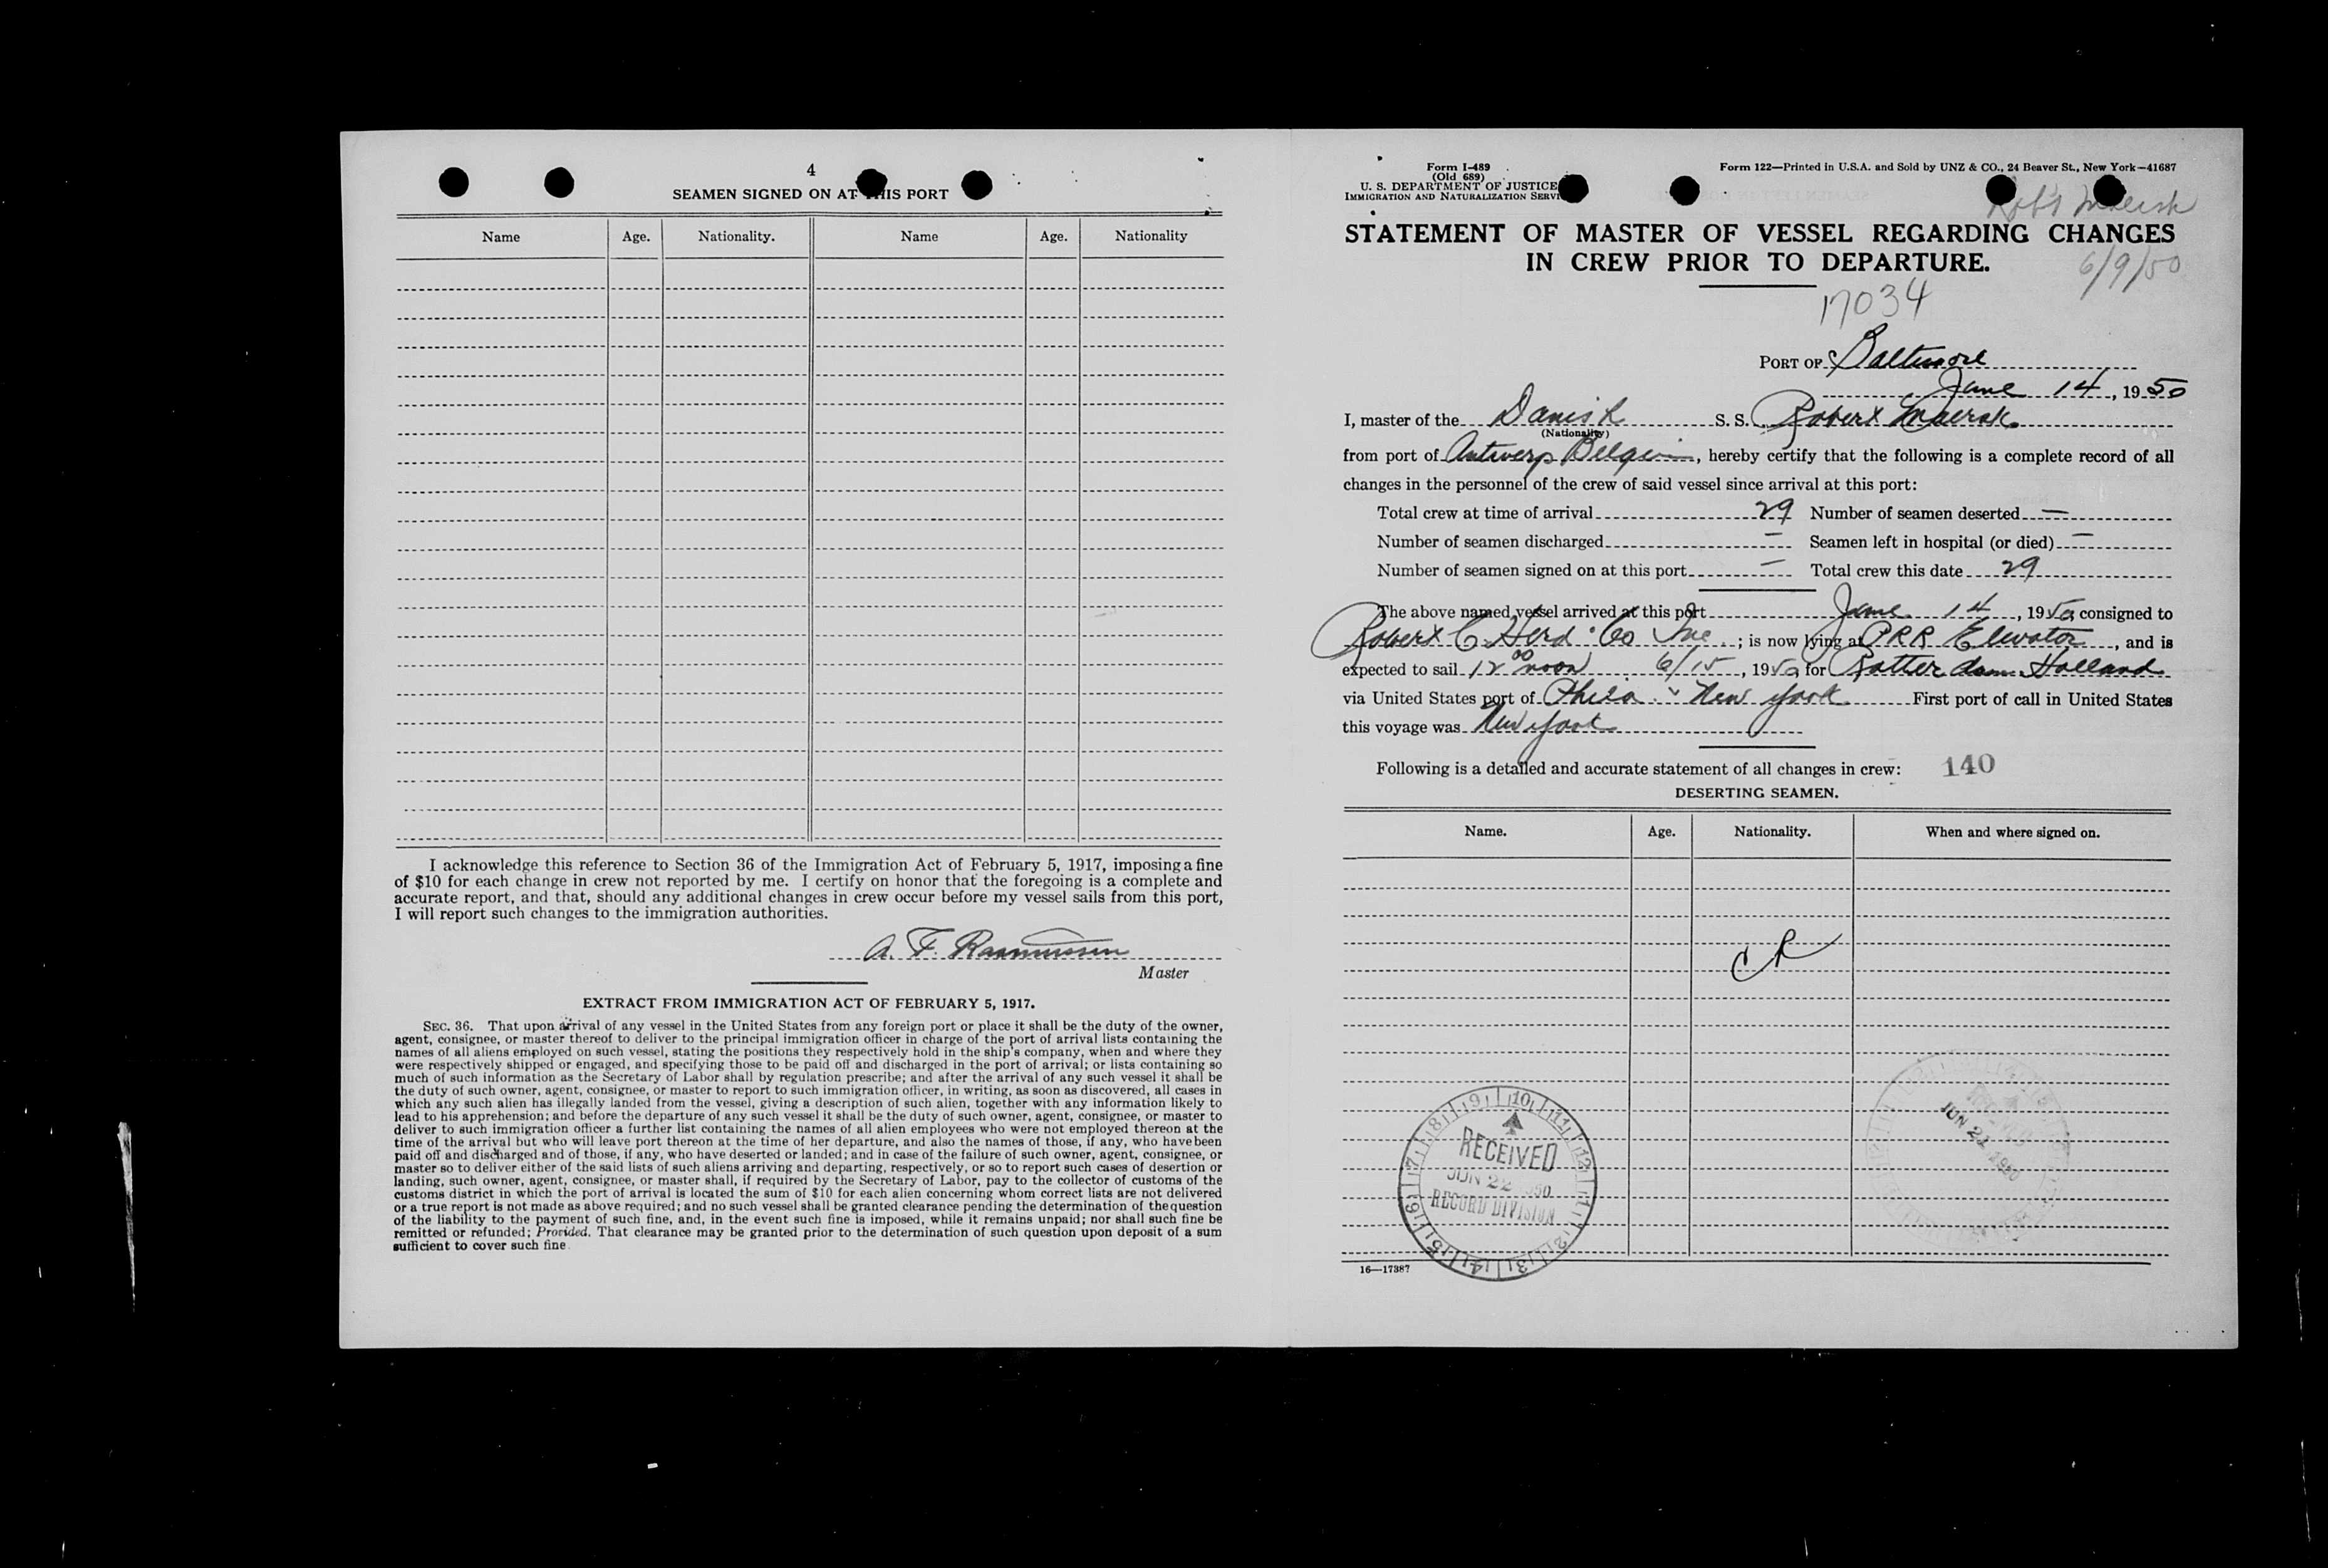 4
SEAMEN SIGNED ON AT THIS PORT
Name Age. Nationality. Name Age. Nationality
I acknowledge this reference to Section 36 of the Immigration Act of February 5, 1917, imposing a fine
of $10 for each change in crew not reported by me. I certify on honor that the foregoing is a complete and
accurate report, and that, should any additional changes in crew occur before my vessel sails from this port,
I will report such changes to the immigration authorities.
A. F. Rasmussen
Master
EXTRACT FROM IMMIGRATION ACT OF FEBRUARY 5, 1917.
SEC. 36. That upon arrival of any vessel in the United States from any foreign port or place it shall be the duty of the owner,
agent, consignee, or master thereof to deliver to the principal immigration officer in charge of the port of arrival lists containing the
names of all aliens employed on such vessel, stating the positions they respectively hold in the ship's company, when and where they
were respectively shipped or engaged, and specifying those to be paid off and discharged in the port of arrival; or lists containing so
much of such information as the Secretary of Labor shall by regulation prescribe; and after the arrival of any such vessel it shall be
the duty of such owner, agent, consignee, or master to report to such immigration officer, in writing, as soon as discovered, all cases in
which any such alien has illegally landed from the vessel, giving a description of such alien, together with any information likely to
lead to his apprehension; and before the departure of any such vessel it shall be the duty of such owner, agent, consignee, or master to
deliver to such immigration officer a further list containing the names of all alien employees who were not employed thereon at the
time of the arrival but who will leave port thereon at the time of her departure, and also the names of those, if any, who have been
paid off and discharged and of those, if any, who have deserted or landed; and in case of the failure of such owner, agent, consignee, or
master so to deliver either of the said lists of such aliens arriving and departing, respectively, or so to report such cases of desertion or
landing, such owner, agent, consignee, or master shall, if required by the Secretary of Labor, pay to the collector of customs of the
customs district in which the port of arrival is located the sum of $10 for each alien concerning whom correct lists are not delivered
or a true report is not made as above required; and no such vessel shall be granted clearance pending the determination of the question
of the liability to the payment of such fine, and, in the event such fine is imposed, while it remains unpaid; nor shall such fine be
remitted or refunded; Provided, That clearance may be granted prior to the determination of such question upon deposit of a sum
sufficient to cover such fine
Form I-489
(Old 689)
U. S. DEPARTMENT OF JUSTICE
IMMIGRATION AND NATURALIZATION SERVI
Form 122—Printed in U.S.A. and Sold by UNZ & CO., 24 Beaver St., New York—41687
Rob't Maersk
STATEMENT OF MASTER OF VESSEL REGARDING CHANGES
IN CREW PRIOR TO DEPARTURE.
6/9/50
17034
PORT OF Baltimore
June 14, 1950
I, master of the Danish S. S. Robert Maersk
(Nationality)
from port of Antwerp Belgium, hereby certify that the following is a complete record of all
changes in the personnel of the crew of said vessel since arrival at this port:
Total crew at time of arrival 29 Number of seamen deserted —
Number of seamen discharged — Seamen left in hospital (or died) —
Number of seamen signed on at this port — Total crew this date 29
The above named vessel arrived at this port June 14, 1950 consigned to
Robert C. Herd & Co Inc.; is now lying at PRR Elevator, and is
expected to sail 12 00 noon 6/15, 1950 for Rotterdam Holland
via United States port of Phila & New York First port of call in United States
this voyage was New York
Following is a detailed and accurate statement of all changes in crew: 140
DESERTING SEAMEN.
Name. Age. Nationality. When and where signed on.
CR
RECEIVED
JUN 22 1950
RECORD DIVISION
JUN 21 1950
16—17387